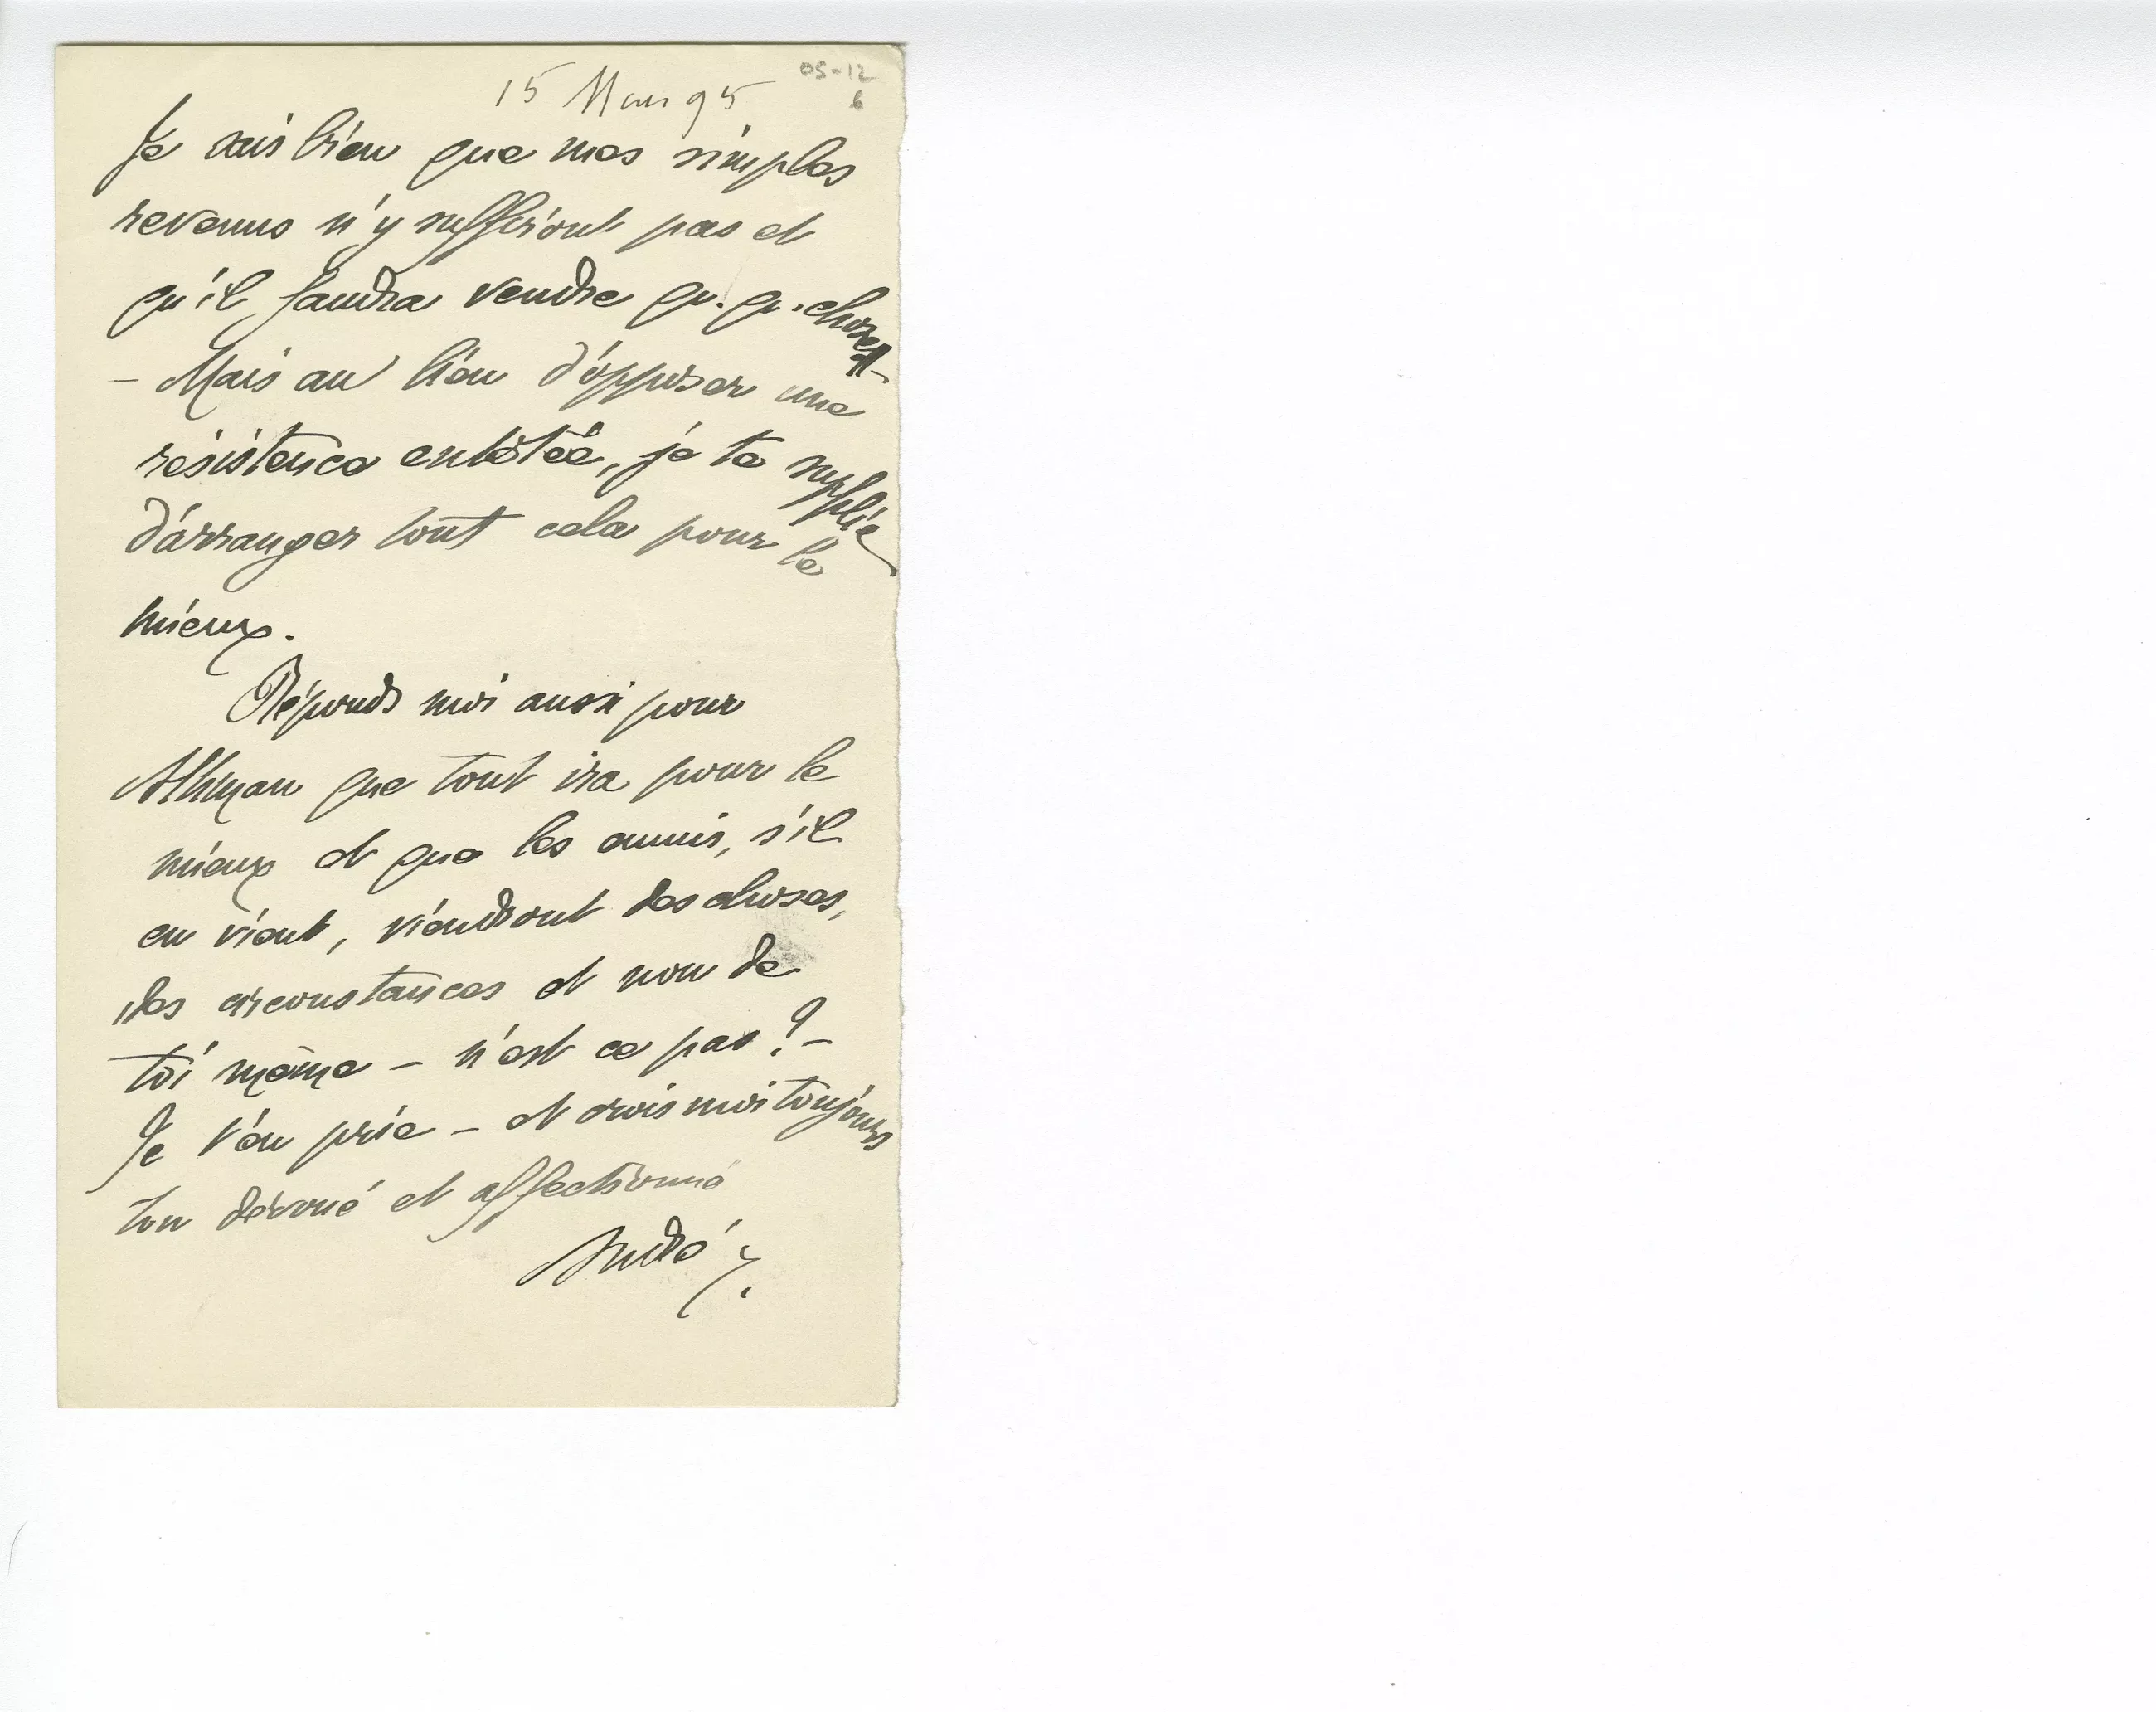 05-12
6
15 Mars 95
Je sais bien que mes simples
revenus n'y suffiront pas et
qu'il faudra vendre qu. qu. chose
– Mais au lieu d'opposer une
résistance entêtée, je te supplie
d'arranger tout cela pour le
mieux.
Réponds moi aussi pour
Athman que tout ira pour le
mieux et que les ennuis, s'il
en vient, viendront des choses,
des circonstances et non de
toi même – n'est ce pas? –
Je t'en prie – et crois moi toujours
ton dévoué et affectionné
André